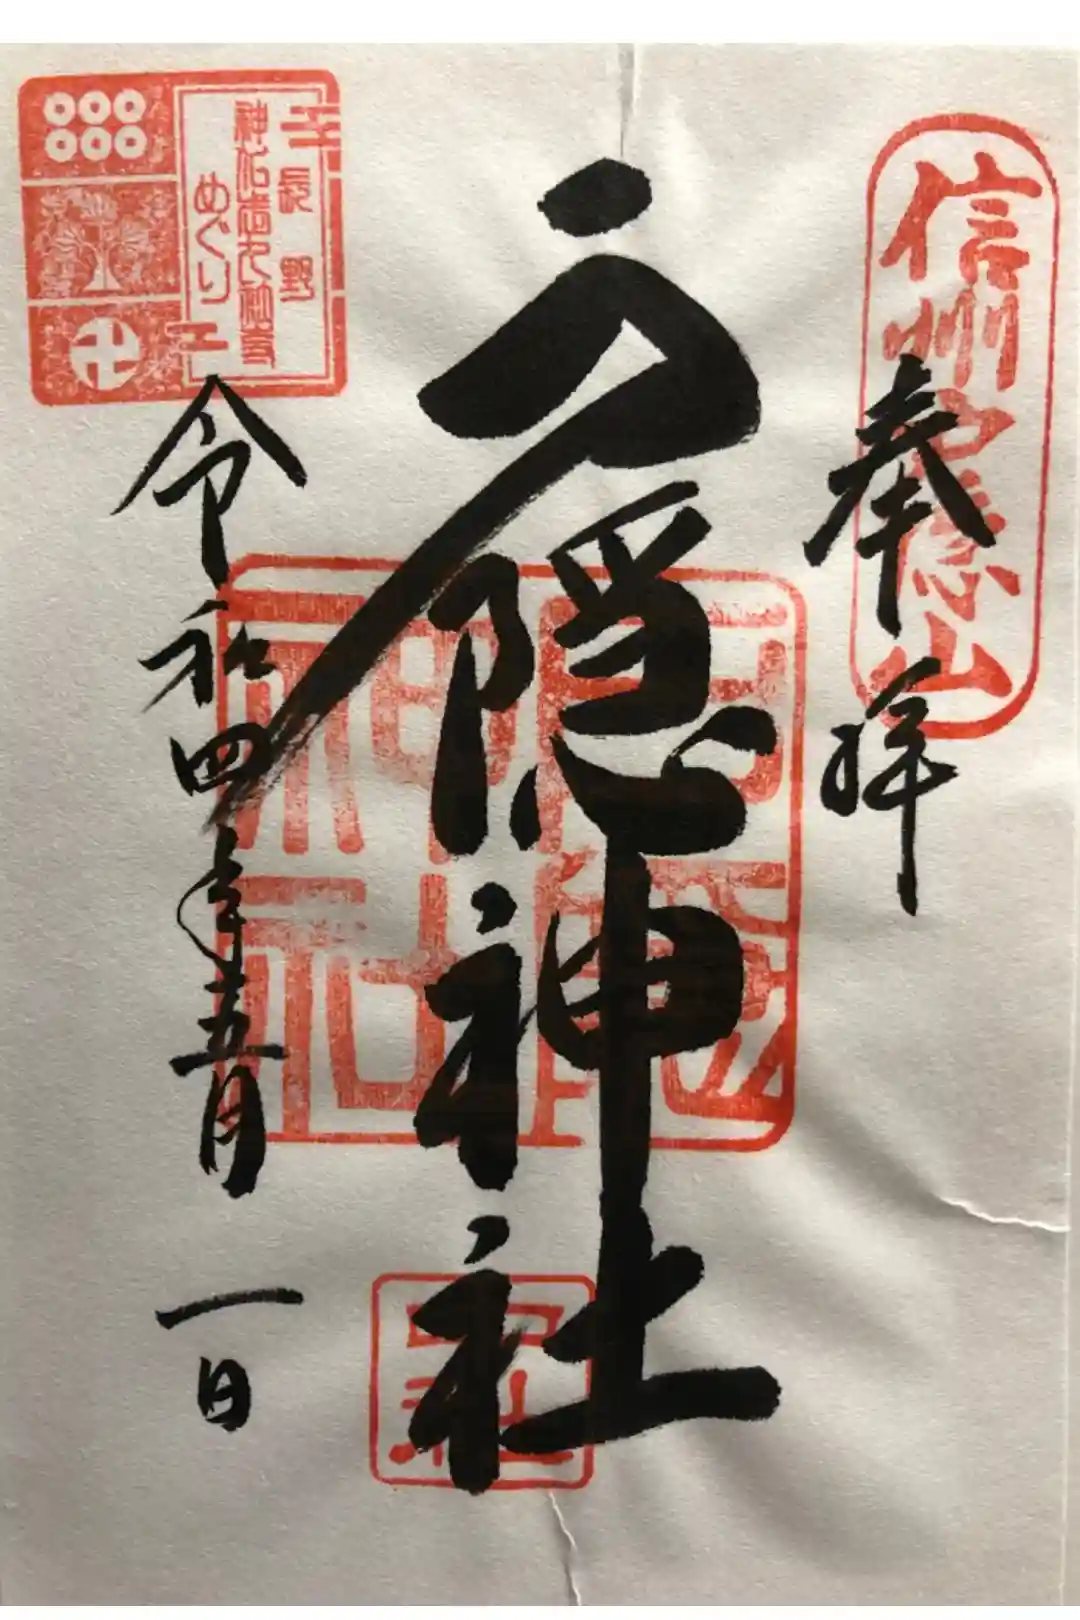 信州戸隠山
奉拝
戸隠神社
戸隠神社
令和四年五月一日
長野
めぐり